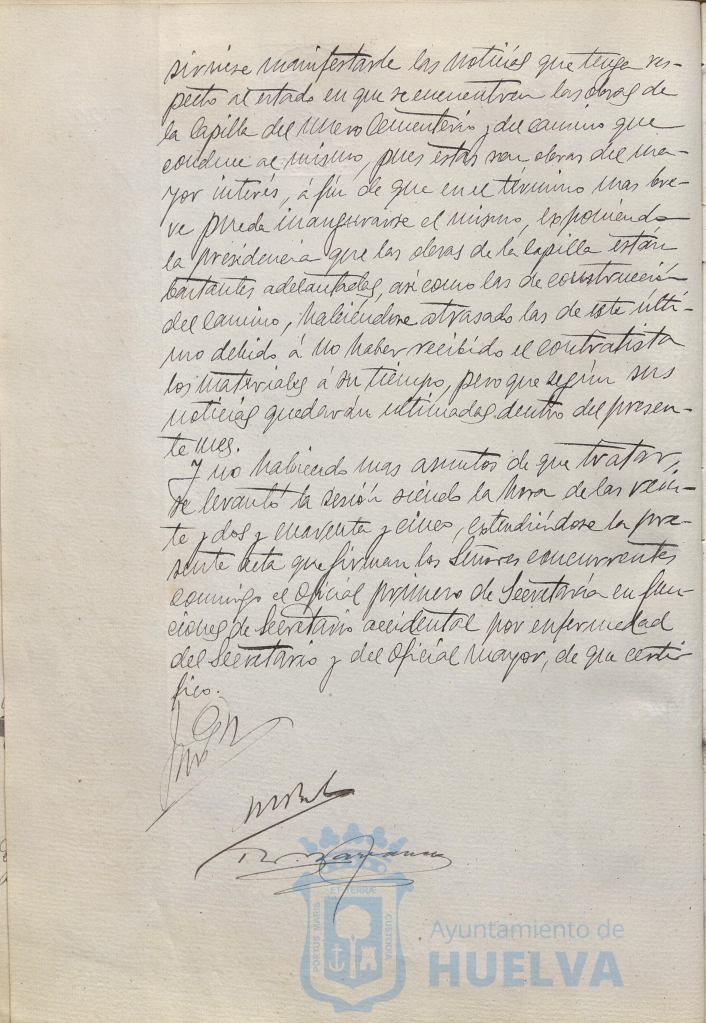 sirviese manifestarle las noticias que tenga res-
pecto al estado en que se encuentran las obras de
la Capilla del nuevo Cementerio y del camino que
conduce al mismo, pues estas son obras del ma-
yor interés, á fin de que en el término mas bre-
ve pueda inaugurarse el mismo, exponiendo
la presidencia que las obras de la Capilla están
bastantes adelantadas, asi como las de construcción
del camino, habiéndose atrasado las de este últi-
mo debido á no haber recibido el contratista
los materiales á su tiempo, pero que según sus
noticias quedarán ultimadas dentro del presen-
te mes.
Y no habiendo mas asuntos de que tratar,
se levantó la sesión siendo la hora de las vein-
te y dos y cuarenta y cinco, extendiéndose la pre-
sente acta que firman los Señores concurrentes
conmigo el Oficial primero de Secretaría en fun-
ciones de Secretario accidental por enfermedad
del Secretario y del Oficial Mayor, de que certi-
fico.
ET TERRÆ
PORTUS MARIS
CUSTODIA
Ayuntamiento de
HUELVA